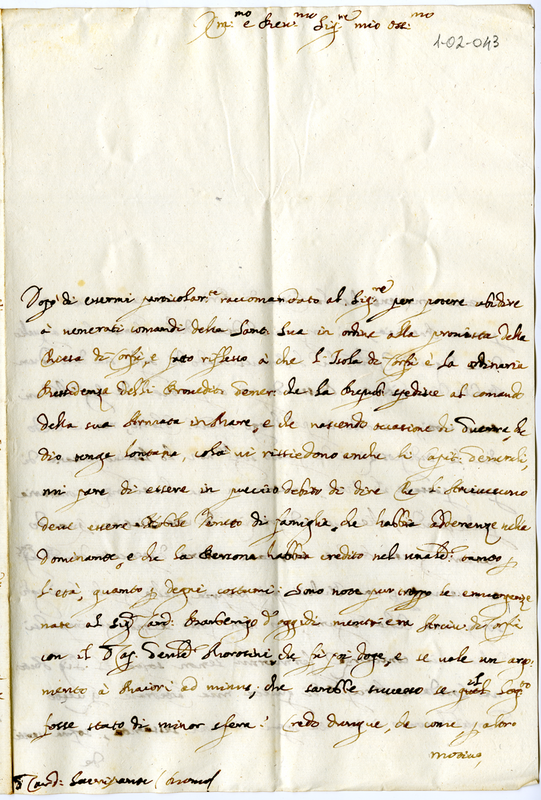 Em.mo e Rev.mo Sig.re mio Oss.mo
1-02-043
Dopò di essermi particolar.te raccomandato al Sig.re per potere ubidire
à venerati comandi della Sant. Sua in ordine alla provista della
Chiesa di Corfù, e fatto riflesso à che l'Isola di Corfù è la ordinaria
Residenza delli Proveditori Gener: che la Republ: spedisce al comando
della sua Armata in Mare, e che nascendo occasione di Guerra, che
Dio tenga lontana, colà vi rissiedono anche li Capit: Generali,
mi pare di essere in preciso debito di dire che l'Arcivescovo
deve essere Nobile Veneto di famiglia, che habbia adderenze nella
Dominante, e che la Persona habbia credito nel tanto p
l'età, quanto p degni costumi. Sono note pur troppo le emergenze
nate al Sig. Card: Barbarigo d'oggidì mentre era Arciv: di Corfù
con il Cap: General Morosini, che fù poi Doge, e se vale un argo
mento à Maiori ad minus, che sarebbe successo se quel Sogg.to
fosse stato di minor sfera? Credo dunque, che come p altro
motivo,
Card: Sacripante (Roma)